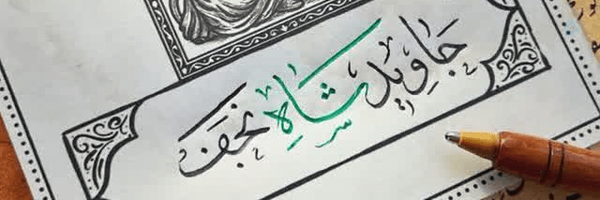 جاوید شاهِ نجف